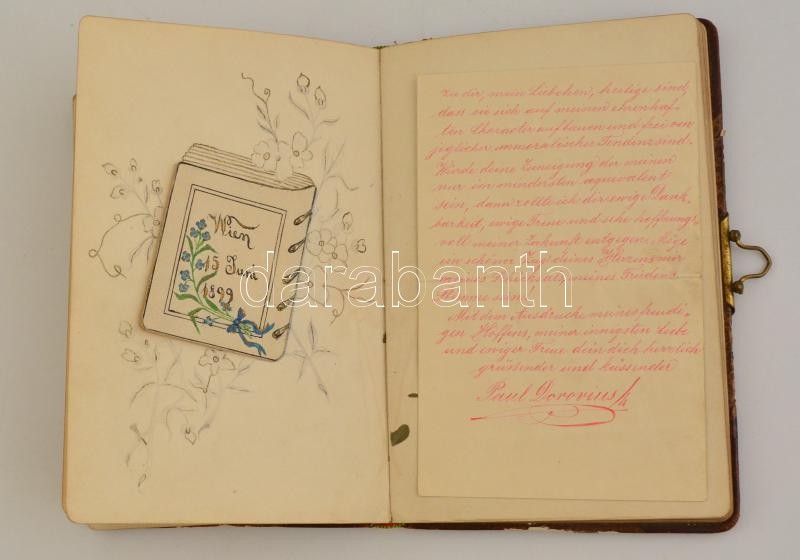 Wien
15 Juni
1899
darabanth
zu dir, mein Liebchen, heilige sind,
dass sie sich auf meinen ehrenhaf-
ten Character aufbauen und frei von
jeglicher immoralischer Tendenz sind.
Würde deine Zuneigung der meinen
nur im mindesten aquevalent
sein, dann zollte ich dir ewige Dank-
barkeit, ewige Treue und sehe hoffnungs-
voll meiner Zukunft entgegen.
ein schöner Zug deines Herzens nur
meines Friedens
sein.
Mit dem Ausdrucke meines freudi-
gen Hoffens, meiner innigsten Liebe
und ewiger Treue dein dich herzlich
grüssender und küssender
Paul Dororius